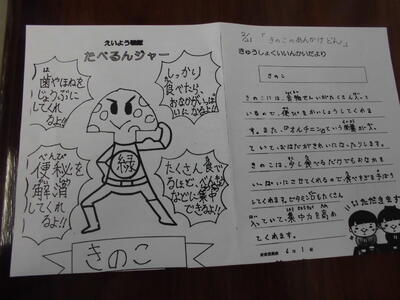 えいよう戦隊
たべるんジャー
歯やほねを
じょうぶに
してくれ
るよ!!
しっかり
食べたら、
おなかがいっぱ
いになるよ!!
べんぴ
便秘を
解消
してくれ
るよ!!
たくさん食べ
るほど、べんきょう
などに集中
できるよ!!
緑
きのこ
2/21 「きのこのあんかけどん」
きゅうしょくいいんかいだより
きのこ
きのこには、食物せんいがたくさん入って
いるので、便ぴをかいしょうしてくれま
す。また、「オルチニン」という栄養が入っ
ていて、おはだがきれいになったりします。
きのこは、少し食べるだけでもおなかを
いっぱいにさせてくれるので食べすぎを予ぼう
してくれます。ビタミンDもたくさん
入っていて、集中力を高め
てくれます。
いただきます
6年1組